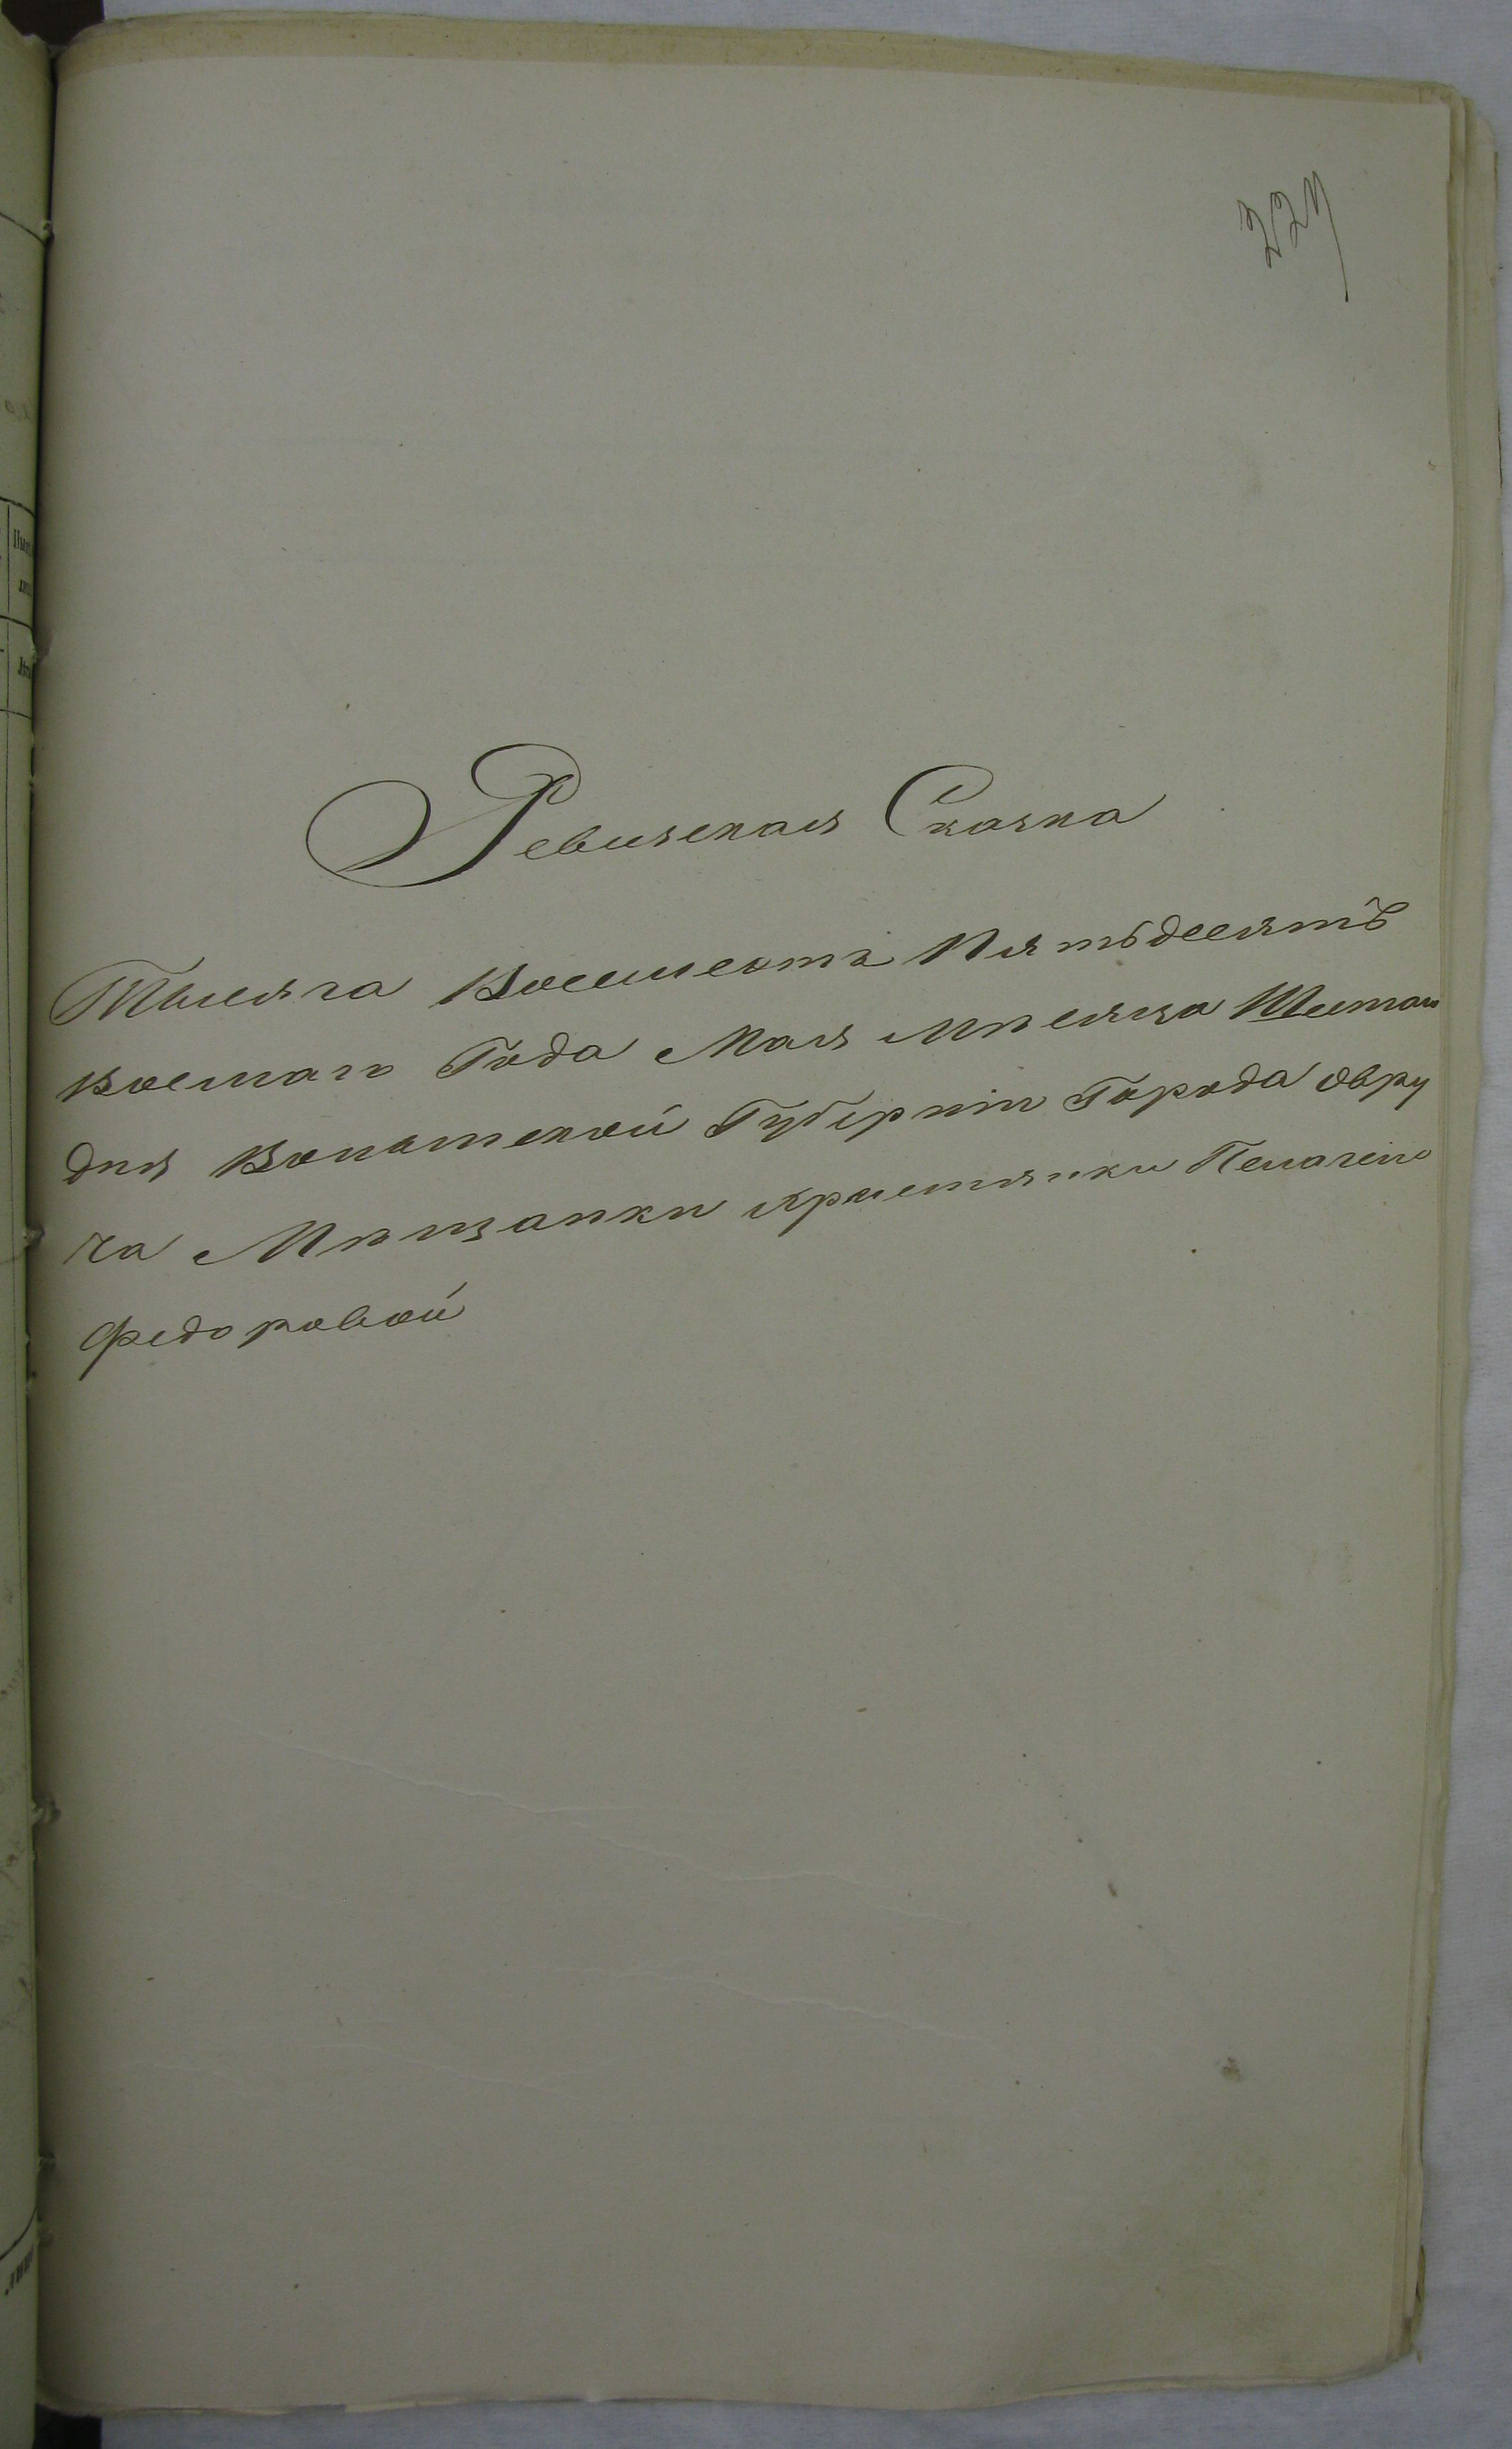 227
Ревизская Сказка
Тысяча Восемьсотъ Пятьдесятъ
восмаго Года Мая мѣсяца Шестаго
дня Волынской Губерніи Города Овру
ча Мѣщанки христіянки Пелагеи
Федоровой